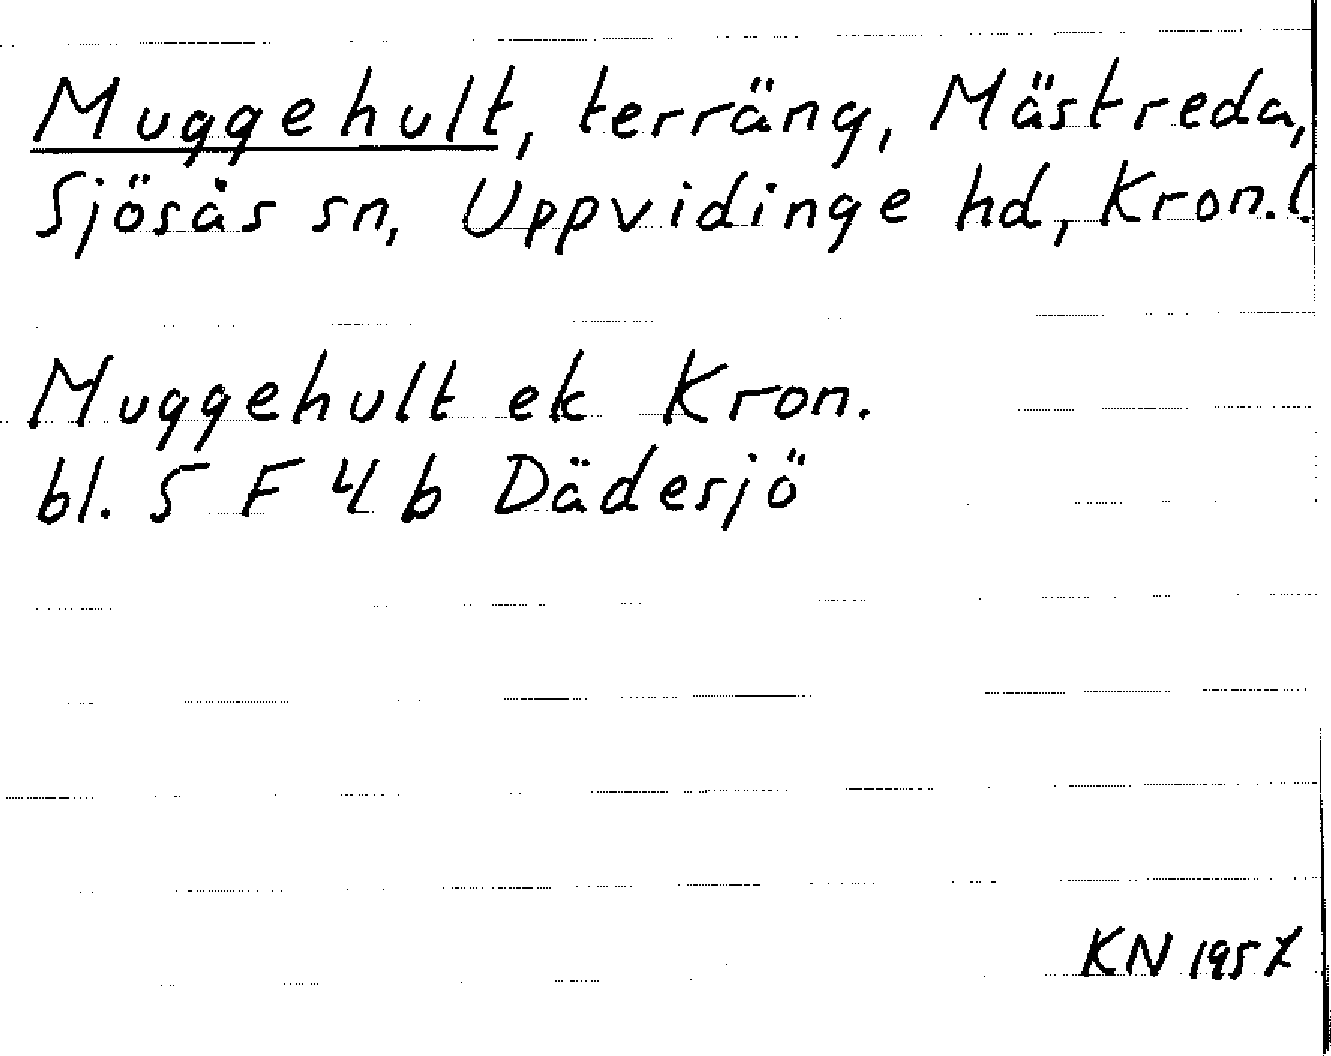 Muggehult, terräng, Mästreda,
Sjösås sn, Uppvidinge hd, Kron.l.
Muggehult ek Kron.
bl. 5 F 4 b Dädesjö
KN 1957